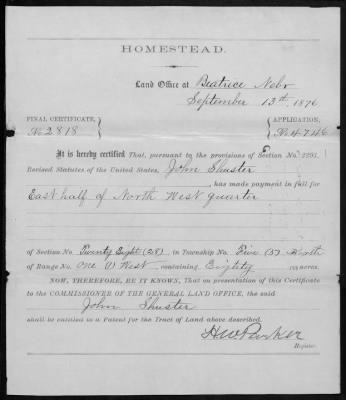 HOMESTEAD.
Land Office at Beatrice Nebr
September 13th 1876
FINAL CERTIFICATE, APPLICATION,
No 2818 No 4746
It is hereby certified That, pursuant to the provisions of Section No. 2291,
Revised Statutes of the United States, John Shuster
has made payment in full for
East half of North West quarter
of Section Twenty Eight (28) in Township No. Five (5) North
of Range No. One (1) West, containing Eighty acres.
NOW, THEREFORE, BE IT KNOWN, That on presentation of this Certificate
to the COMMISSIONER OF THE GENERAL LAND OFFICE, the said
John Shuster
shall be entitled to a Patent for the Tract of Land above described.
H W Parker
Register.